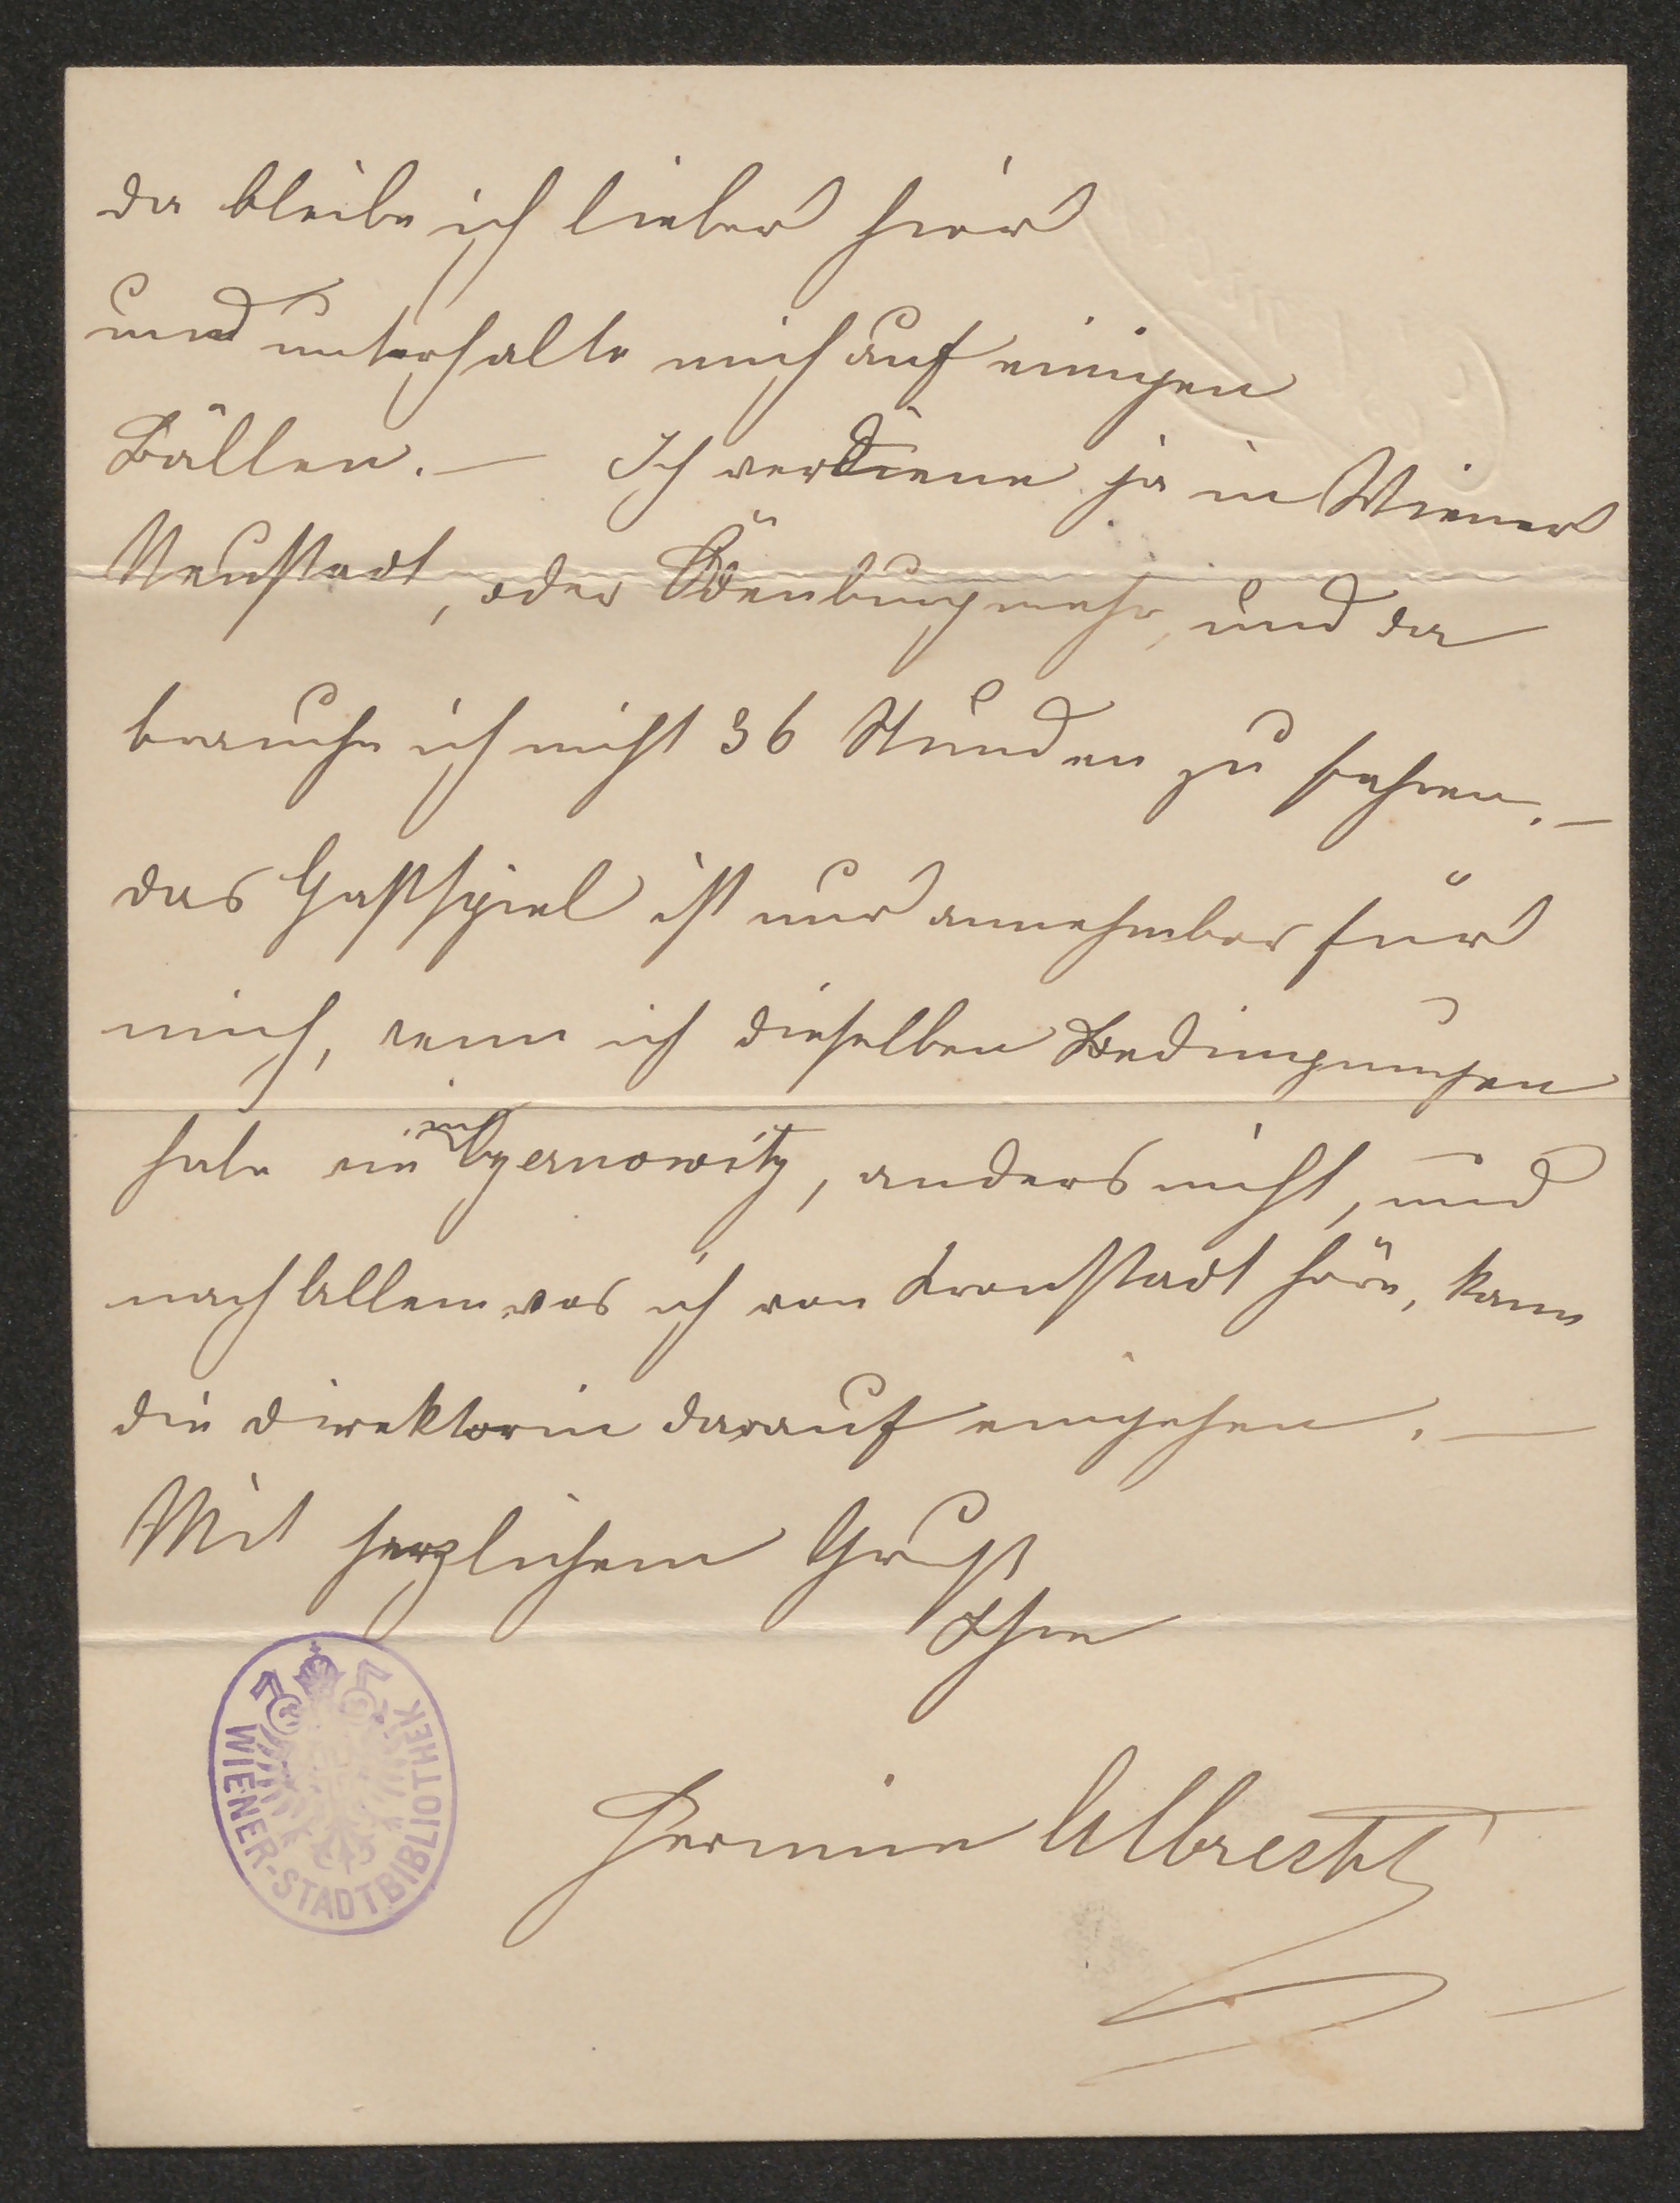 da bleibe ich lieber hier
und unterhalte mich auf einigen
Bällen. — Ich verdiene ja in Wiener
Neustadt, oder Ödenburg mehr, und da
brauche ich nicht 36 Stunden zu fahren. —
das Gastspiel ist nur annehmbar für
mich, wenn ich dieselben Bedingungen
habe wie in Czernowitz, anders nicht, und
nach Allem was ich von Kronstadt höre, kann
die Direktorin darauf eingehen. —
Mit herzlichem Gruß
Ihre
Hermine Albrecht
WIENER-STADTBIBLIOTHEK